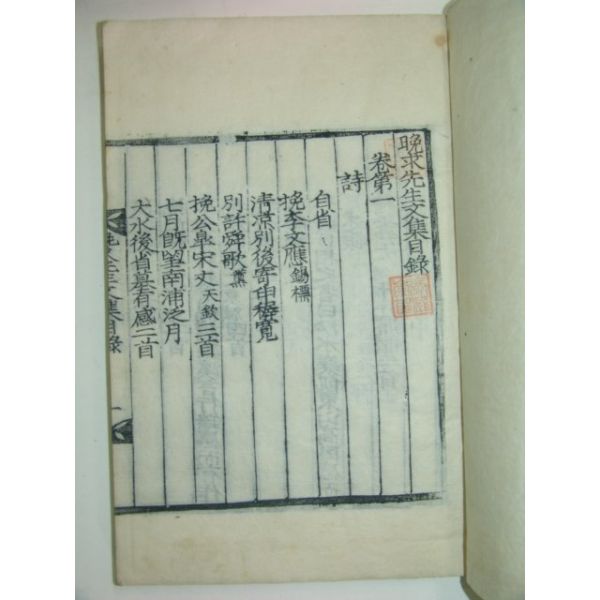 晚求先生文集目錄
卷第一
詩
自省
挽李文應錫標
清凉別後寄申穉寬
別許舜歌薰
挽公皇宋丈天欽三首
七月旣望南浦泛月
大水後省墓有感二首
先生文集目錄
一